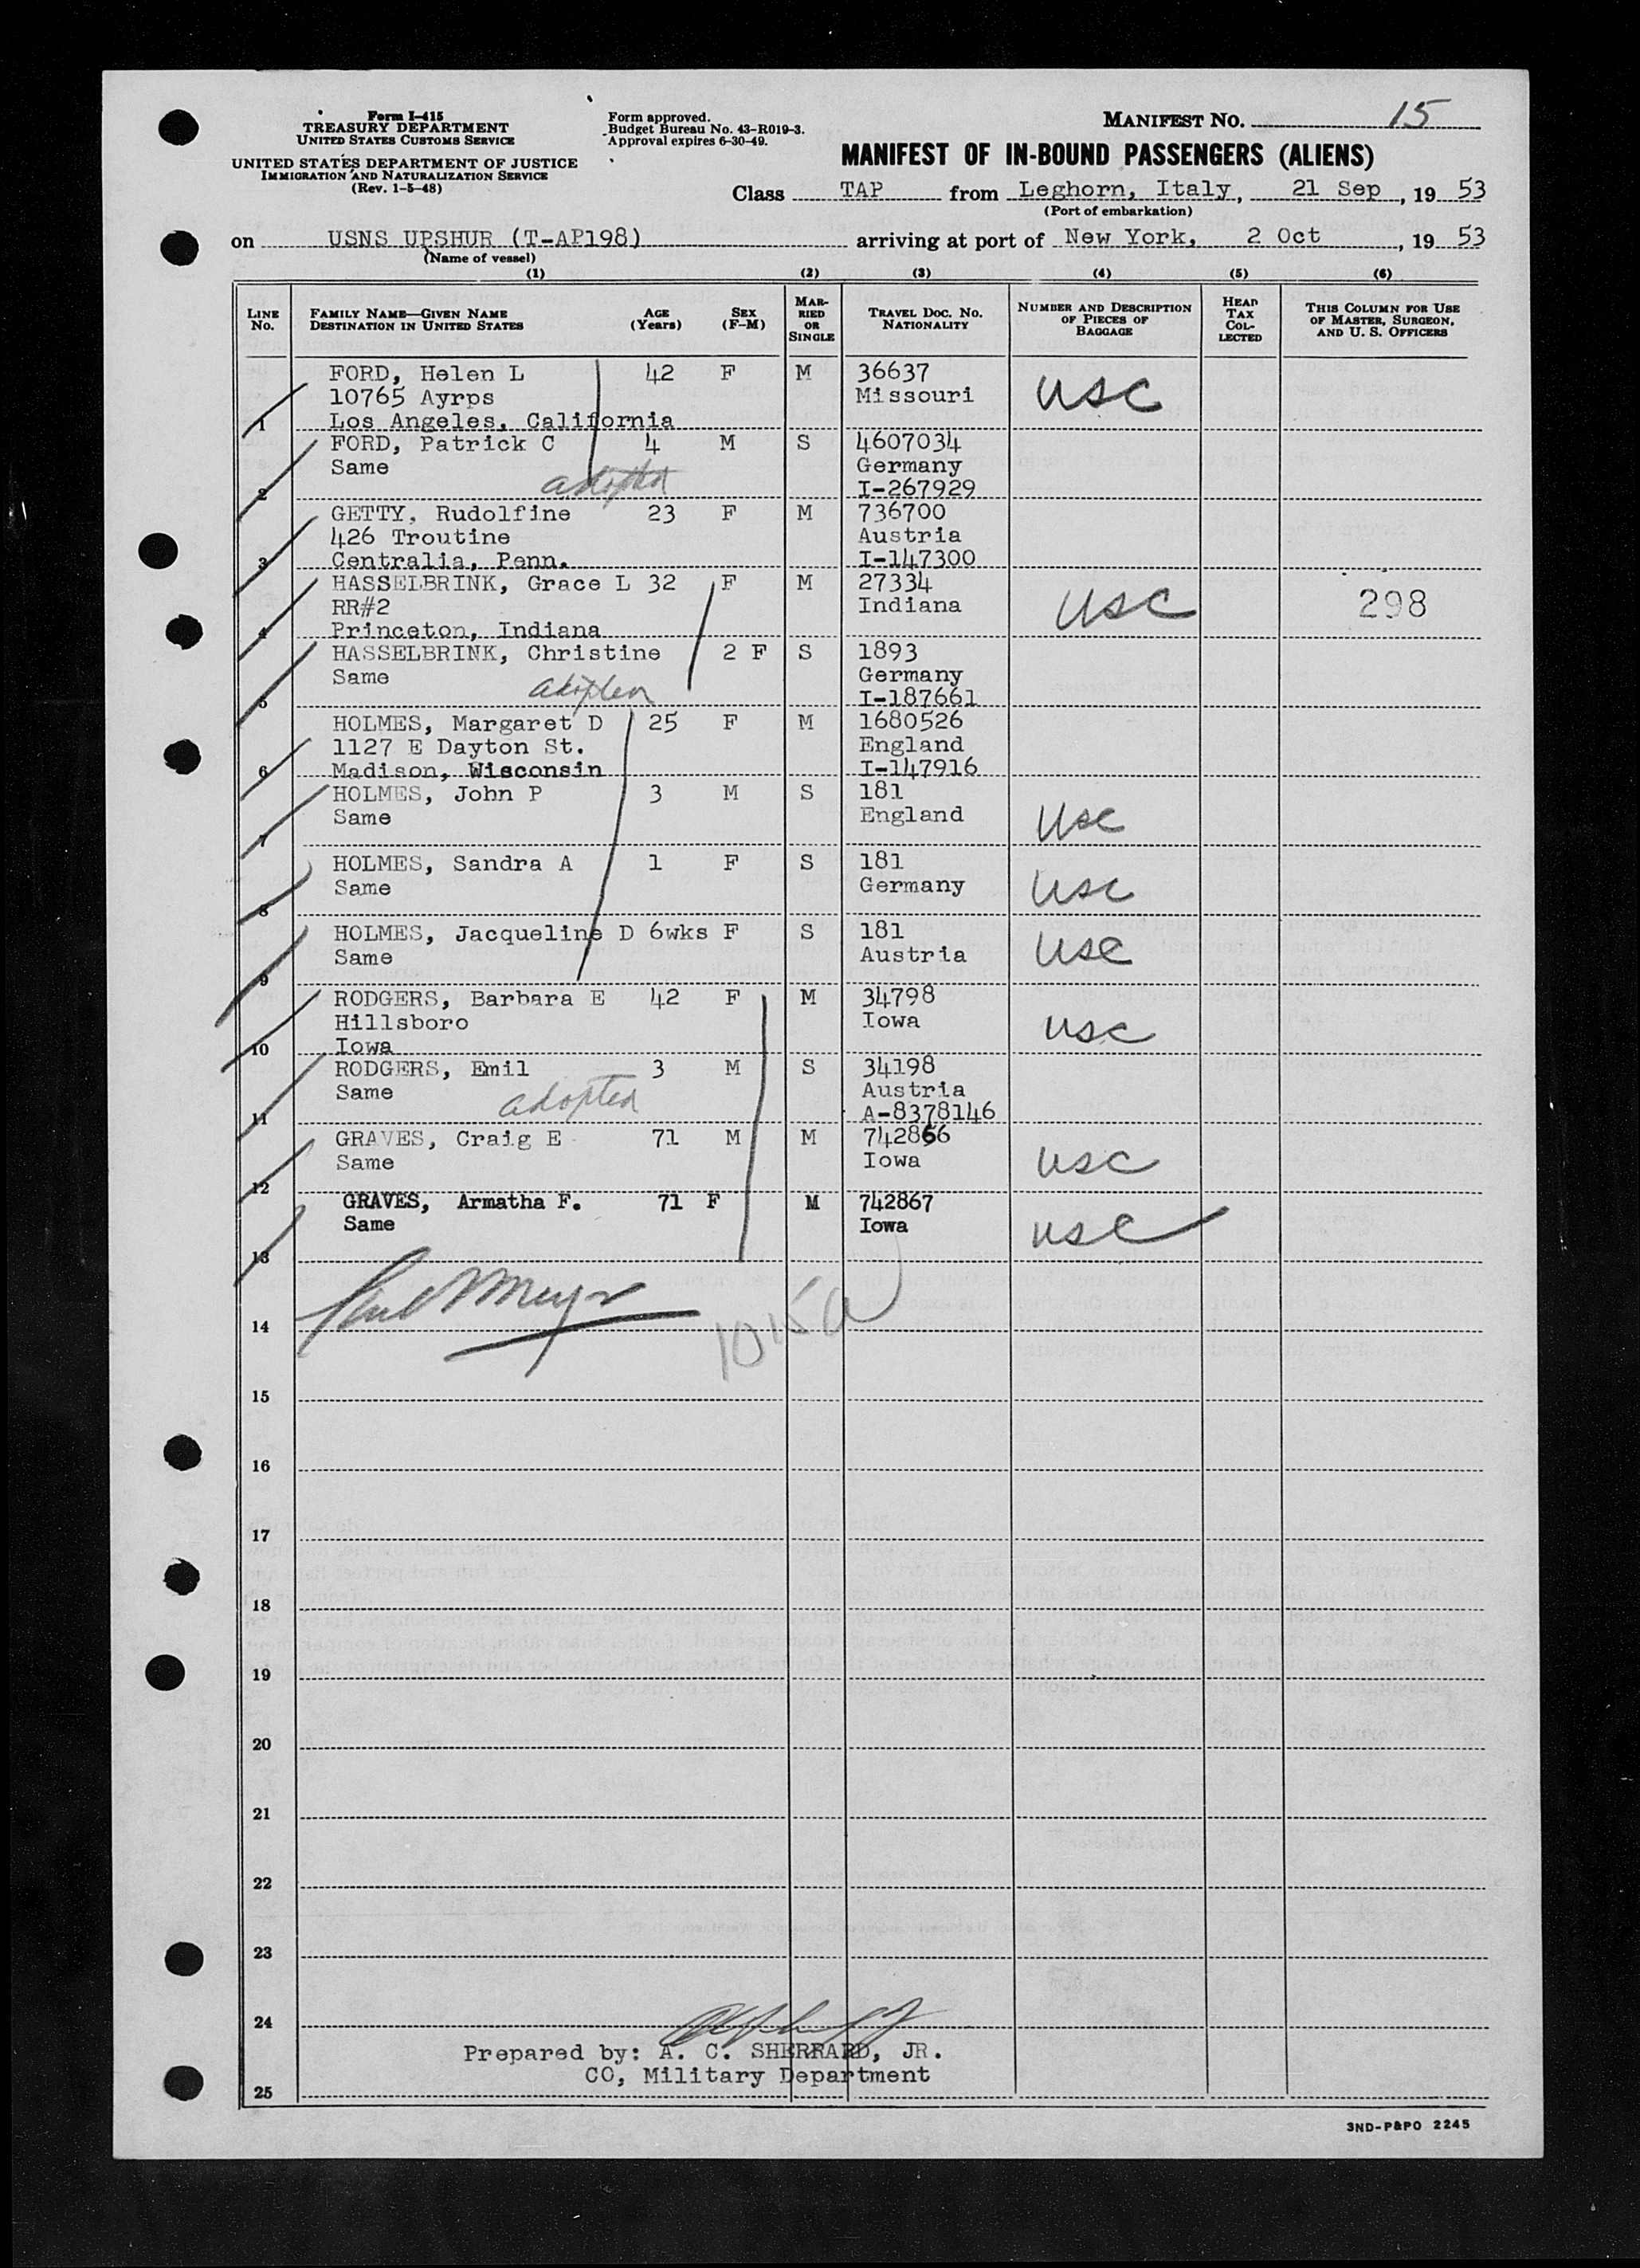 Form I-415
TREASURY DEPARTMENT
UNITED STATES CUSTOMS SERVICE
UNITED STATES DEPARTMENT OF JUSTICE
IMMIGRATION AND NATURALIZATION SERVICE
(Rev. 1-5-48)
Form approved.
Budget Bureau No. 43-R019-3.
Approval expires 6-30-49.
MANIFEST NO. 15
MANIFEST OF IN-BOUND PASSENGERS (ALIENS)
Class TAP from Leghorn, Italy, 21 Sep, 19 53
(Port of embarkation)
on USNS UPSHUR (T-AP198) arriving at port of New York, 2 Oct, 19 53
(Name of vessel)
(1) (2) (3) (4) (5) (6)
LINE No. FAMILY NAME—GIVEN NAME DESTINATION IN UNITED STATES AGE (Years) SEX (F-M) MARRIED OR SINGLE TRAVEL DOC. NO. NATIONALITY NUMBER AND DESCRIPTION OF PIECES OF BAGGAGE HEAD TAX COLLECTED THIS COLUMN FOR USE OF MASTER, SURGEON, AND U. S. OFFICERS
FORD, Helen L 42 F M 36637
10765 Ayrps Missouri USC
1 Los Angeles, California
FORD, Patrick C 4 M S 4607034
Same Germany
2 adopted I-267929
GETTY, Rudolfine 23 F M 736700
426 Troutine Austria
3 Centralia, Penn. I-147300
HASSELBRINK, Grace L 32 F M 27334
RR#2 Indiana USC 298
4 Princeton, Indiana
HASSELBRINK, Christine 2 F S 1893
Same Germany
5 adopted I-187661
HOLMES, Margaret D 25 F M 1680526
1127 E Dayton St. England
6 Madison, Wisconsin I-147916
HOLMES, John P 3 M S 181
Same England USC
7
HOLMES, Sandra A 1 F S 181
Same Germany USC
8
HOLMES, Jacqueline D 6wks F S 181
Same Austria USC
9
RODGERS, Barbara E 42 F M 34798
Hillsboro Iowa USC
10 Iowa
RODGERS, Emil 3 M S 34198
Same Austria
11 adopted A-8378146
GRAVES, Craig E 71 M M 742866
Same Iowa USC
12
GRAVES, Armatha F. 71 F M 742867
Same Iowa USC
13
14
15
16
17
18
19
20
21
22
23
24
Prepared by: A. C. SHERRARD, JR.
CO, Military Department
25
3ND-P&PO 2245